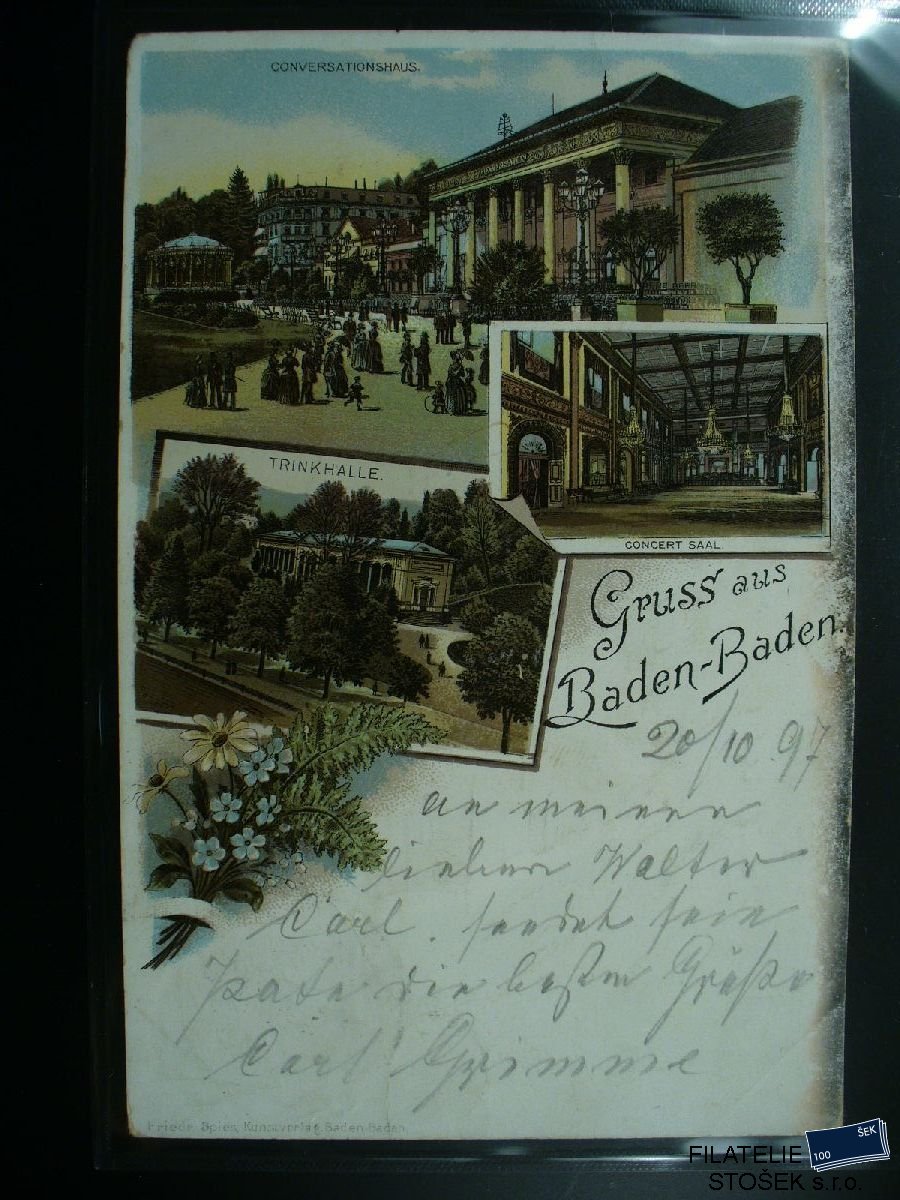 CONVERSATIONSHAUS.
TRINKHALLE.
CONCERT SAAL.
Gruss aus
Baden-Baden.
20/10 97
an meinen
lieben Walter
Carl. sendet sein
Pate die besten Grüße
Carl Grimme
Friedr. Spies, Kunstverlag, Baden-Baden
FILATELIE
STOŠEK s.r.o.
100 ŠEK